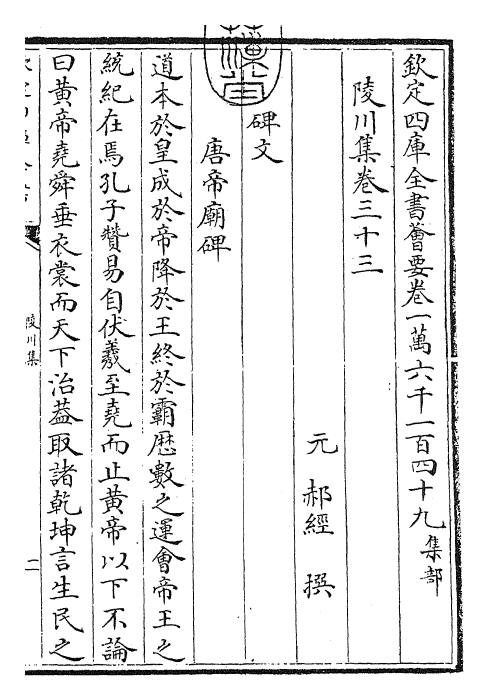 欽定四庫全書薈要卷一萬六千一百四十九集部
陵川集卷三十三
元 郝經 撰
碑文
唐帝廟碑
道本於皇成於帝降於王終於霸歴數之運會帝王之
統紀在焉孔子贊易自伏羲至堯而止黃帝以下不論
曰黃帝堯舜垂衣裳而天下治葢取諸乾坤言生民之
陵川集
二